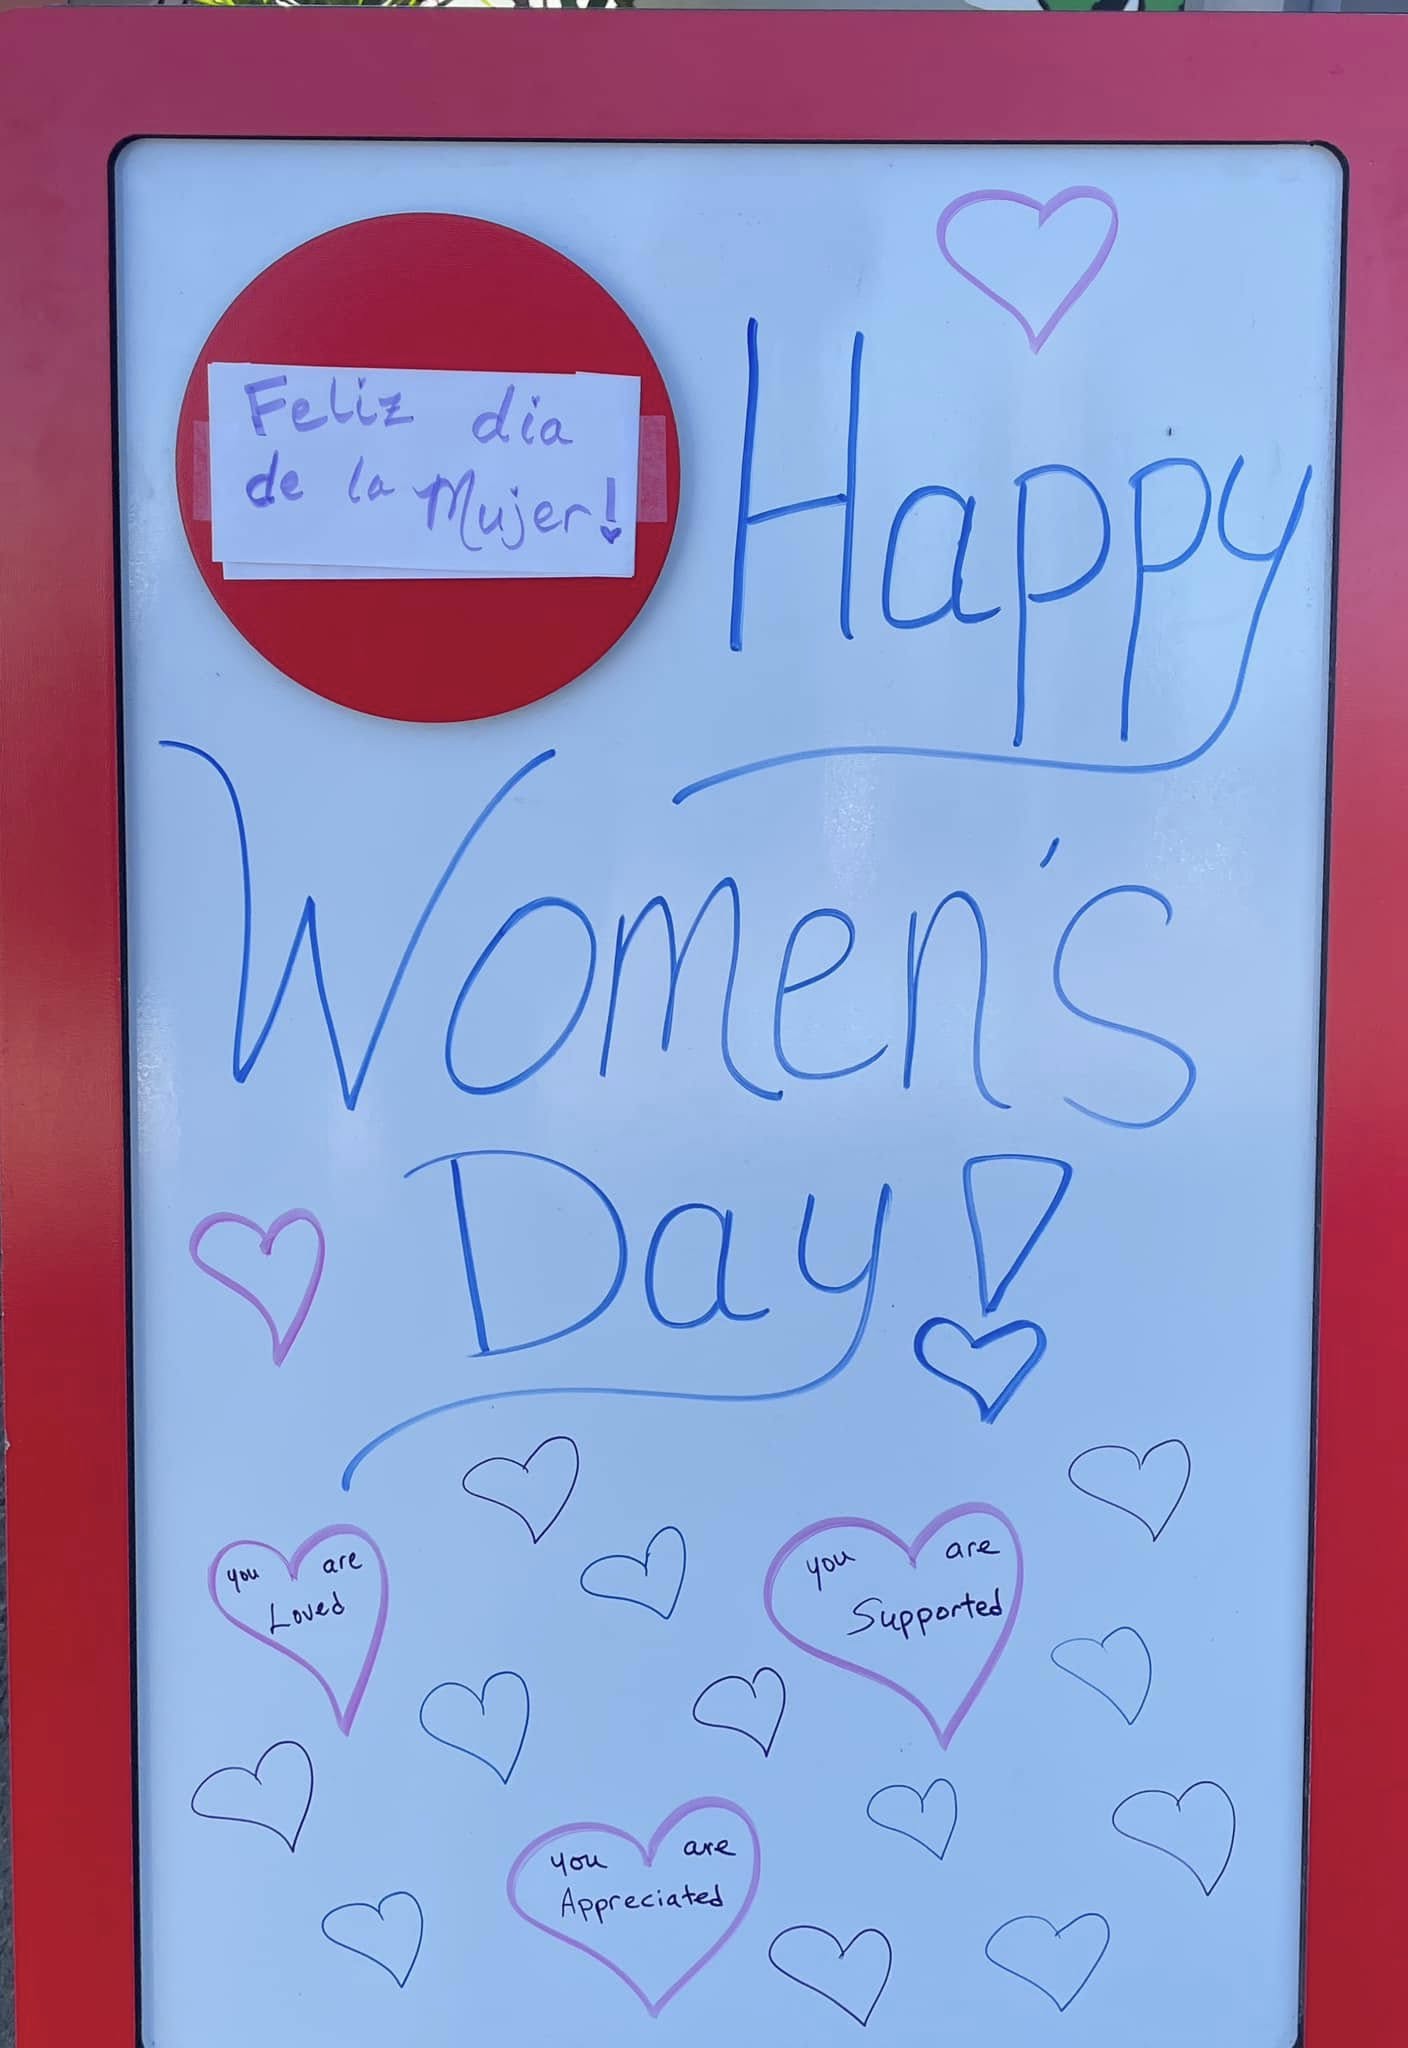 Feliz dia
de la Mujer!
Happy
Women's
Day!
you are
Loved
you are
Supported
you are
Appreciated